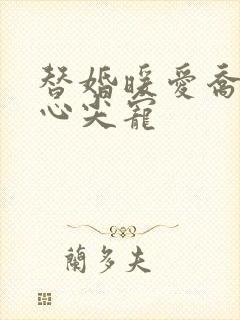 替婚暖爱喬
心尖寵
蘭多夫